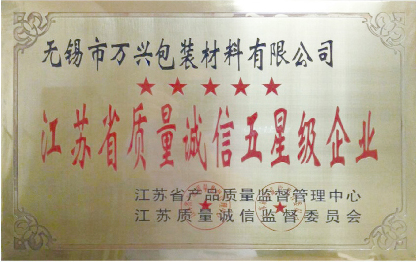 无锡市万兴包装材料有限公司
★★★★★
江苏省质量诚信五星级企业
江苏省产品质量监督管理中心
江苏质量诚信监督委员会